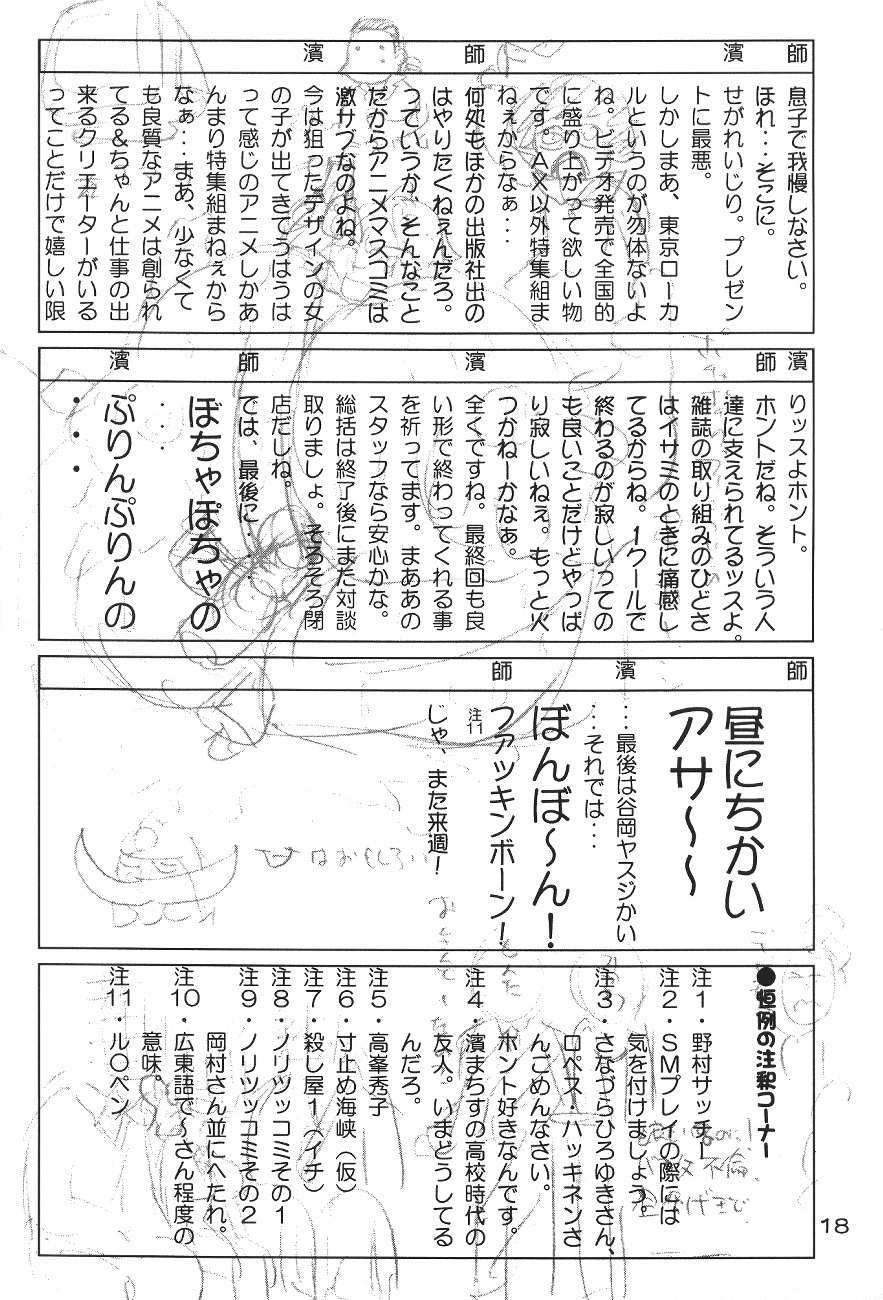 師
濱
師
濱
息子で我慢しなさい。
ほれ・・・そこに。
せがれいじり。プレゼン
トに最悪。
しかしまあ、東京ローカ
ルというのが勿体ないよ
ね。ビデオ発売で全国的
に盛り上がって欲しい物
です。AX以外特集組ま
ねぇからなぁ・・・
何処もほかの出版社出の
はやりたくねぇんだろ。
っていうか、そんなこと
だからアニメマスコミは
激サブなのよね。
今は狙ったデザインの女
の子が出てきてうはうは
って感じのアニメしかあ
んまり特集組まねぇから
なぁ・・・まあ、少なくて
も良質なアニメは創られ
てる&ちゃんと仕事の出
来るクリエーターがいる
ってことだけで嬉しい限
濱
師
濱
師
濱
りッスよホント。
ホントだね。そういう人
達に支えられてるッスよ。
雑誌の取り組みのひどさ
はイサミのときに痛感し
てるからね。1クールで
終わるのが寂しいっての
も良いことだけどやっぱ
り寂しいねぇ。もっと火
つかねーかなぁ。
全くですね。最終回も良
い形で終わってくれる事
を祈ってます。まああの
スタッフなら安心かな。
総括は終了後にまた対談
取りましょ。そろそろ閉
店だしね。
では、最後に・・・
ぼちゃぽちゃの
・・・
ぷりんぷりんの
・・・
師
濱
師
昼にちかい
アサ〜〜
・・・最後は谷岡ヤスジかい
・・・それでは・・・
ぼんぼ〜ん!
ファッキンボーン!
注11
じゃ、また来週!
はおもしろい
●恒例の注釈コーナー
注1・野村サッチー
注2・SMプレイの際には
気を付けましょう。
注3・さなづらひろゆきさん、
ロペス・ハッキネンさ
んごめんなさい。
ホント好きなんです。
注4・濱まちすの高校時代の
友人。いまどうしてる
んだろ。
注5・高峯秀子
注6・寸止め海峡(仮)
注7・殺し屋1(イチ)
注8・ノリツッコミその1
注9・ノリツッコミその2
岡村さん並にへたれ。
注10・広東語で〜さん程度の
意味。
注11・ル〇ペン
18